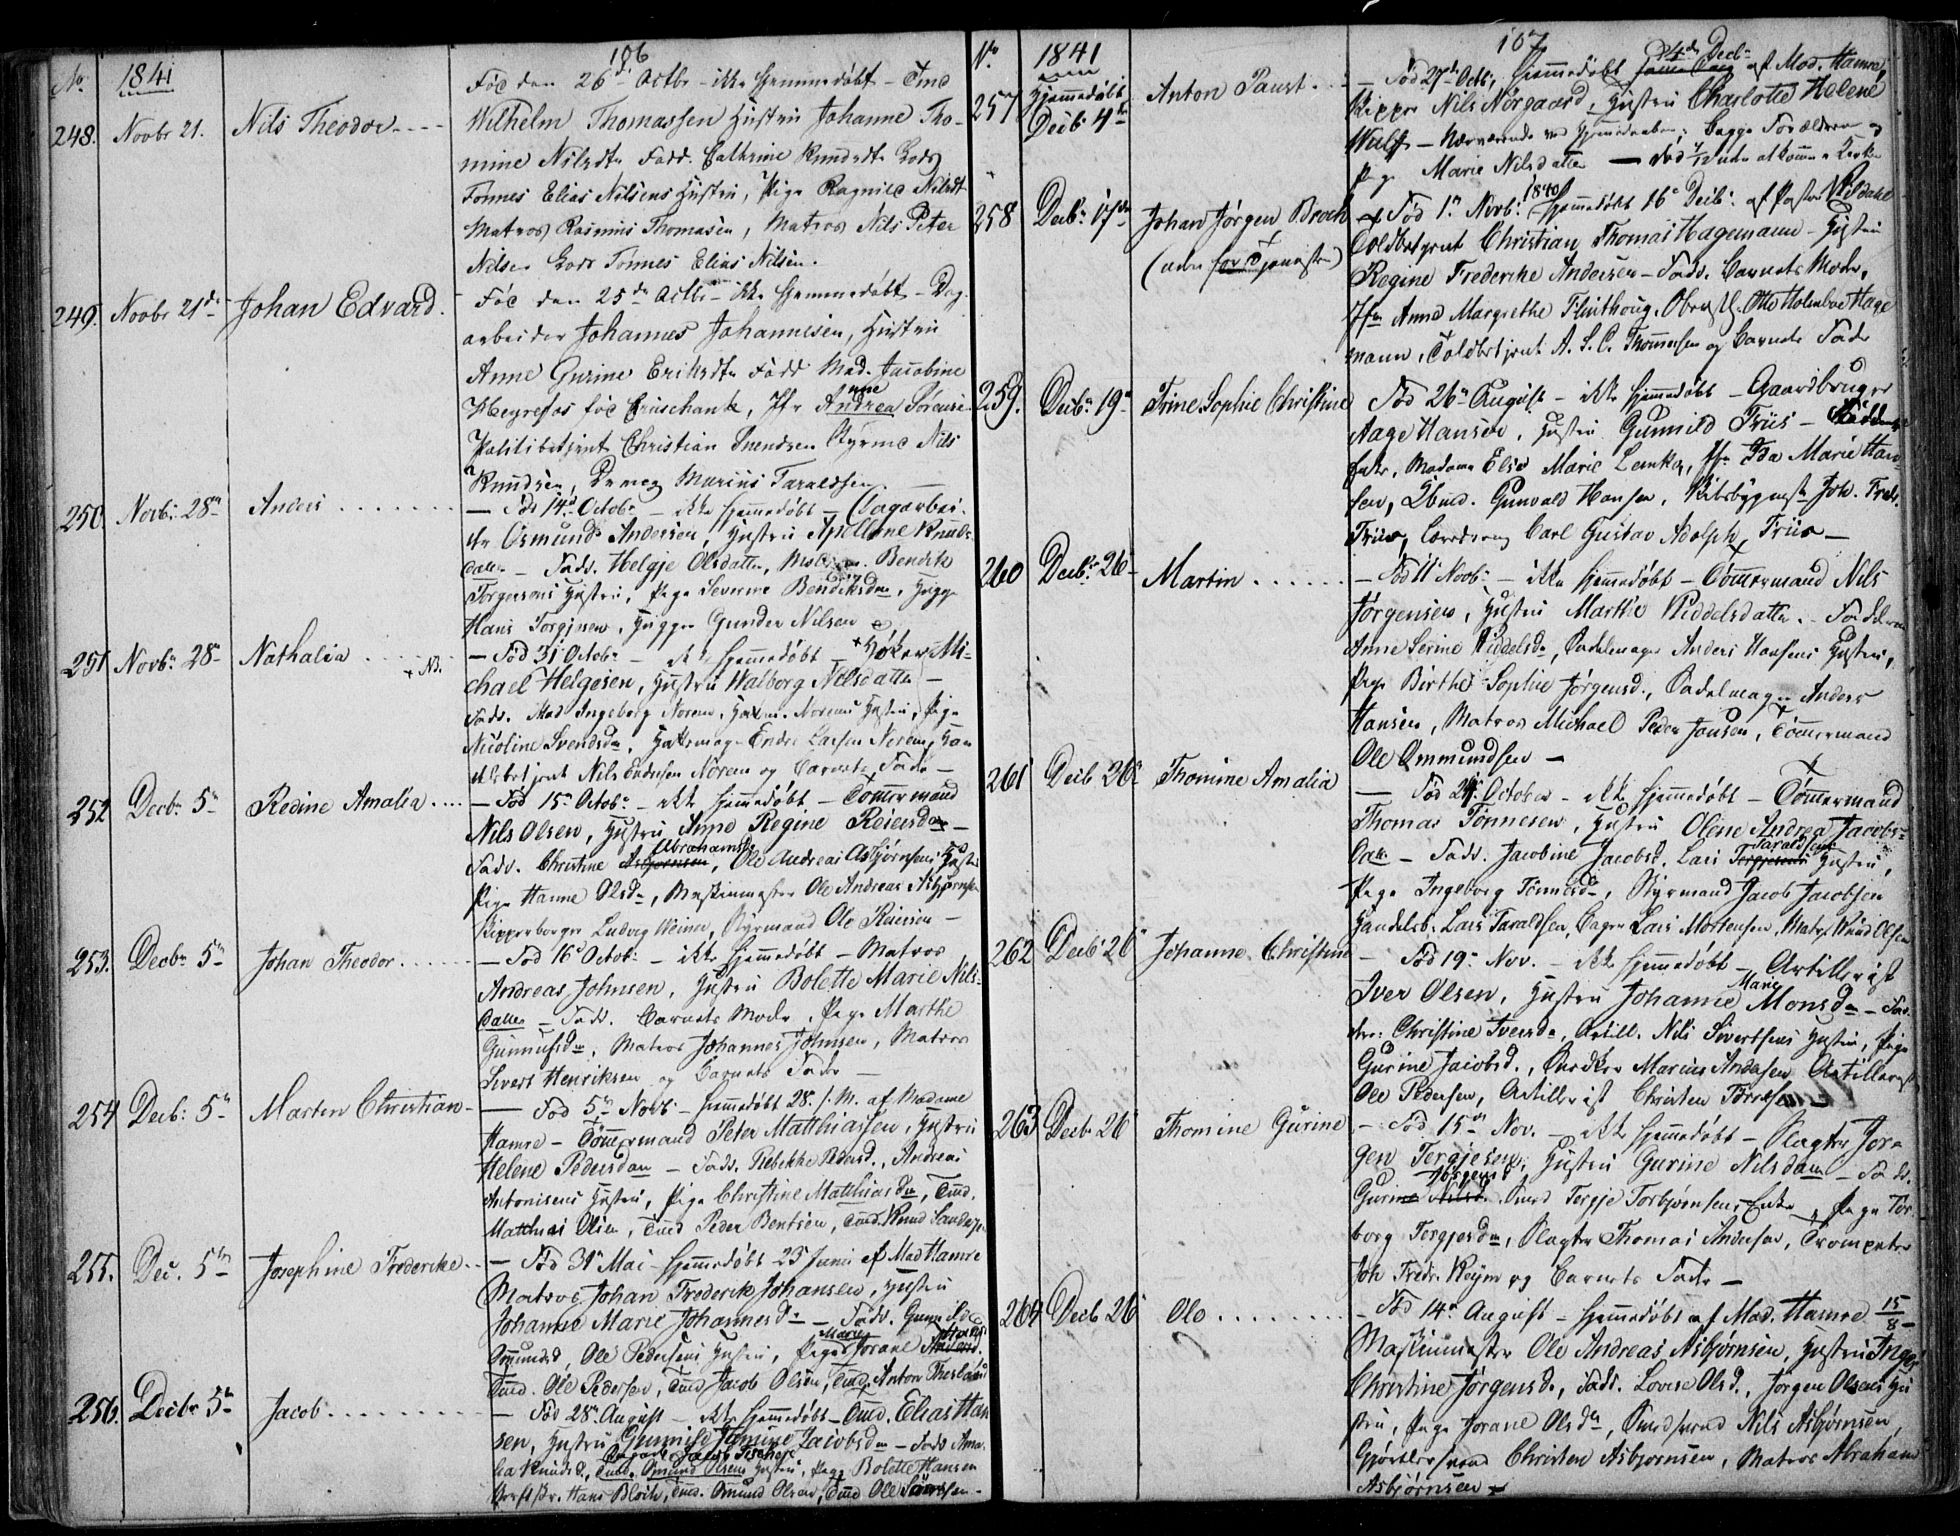 106
No 1841
248. Novbr 21. Nils Theodor
Fød den 26de Octbr - ikke hjemmedøbt - Tmd
Wilhelm Thomassen Hustru Johanne Tho-
mine Nilsdtr Fadd. Cathrine Knudsdtr Lods
Tønnes Elias Nilsens Hustru, Pige Ragnild Nilsdt
Matros Rasmus Thomasen, Matros Nils Peter
Nilsen Lods Tønnes Elias Nilsen.
249. Novbr 21de Johan Edvard.
Fød den 25de Octbr - ikke hjemmedøbt - Dag-
arbeider Johannes Johannesen, Hustru
Anne Gurine Eriksdtr Fadd Mad. Jacobine
fød Jfr Andrea Sørense
Politibetjent Christian Svendsen Styrmd Nils
Knudsen, Marius Taraldsen
250. Novb: 28de Anders
- Fød 14de Octobr - ikke hjemmedøbt - Dagarbei-
der Osmund Andersen, Hustru Apellone Knuds-
datter - Fadd. Helgje Olsdatter, Bendik
Torgersens Hustru, Pige Severine Bendiksdtr,
Hans Torgjesen, Gunder Nilsen
251 Novb: 28de Nathalia + NB.
- Fød 31 Octobr - ikke hjemmedøbt + Høker Mi-
chael Helgesen, Hustru Walborg Nilsdatter -
Fadd. Mad Ingeborg Norem, Norems Hustru, Pige
Nicoline Svendsdtr, Endre Larsen Norem, Han
delsbetjent Nils Endresen Norem og Barnets Fader -
252 Decbr 5te Redine Amalia
- Fød 15de Octobr - ikke hjemmedøbt - Tømmermand
Nils Olsen, Hustru Anne Regine Reiersdtr -
Abrahamsdtr
Fadd. Christine Asbjørnsen, Ole Andreas Asbjørnsens Hustru
Pige Hanne Olsdtr, Maskinmester Ole Andreas Asbjørnsen
Skipperborger Ludvig Weiner, Styrmand Ole Reiersen -
253. Decbr 5te Johan Theodor
- Fød 16de Octobr - ikke hjemmedøbt - Matros
Andreas Johnsen, Hustru Bolette Marie Nils-
datter - Fadd. Barnets Moder, Pige Marthe
Gunnufsdtr, Matros Johannes Johnsen, Matros
Sivert Henriksen og Barnets Fader -
254 Decb: 5te Marten Christian
- Fød 5te Novb: - hjemmedøbt 28. s. M. af Madame
Hamre - Tømmermand Peter Matthiassen, Hustru
Helene Pedersdatter - Fadd. Rebekke Pedersd., Andreas
Antonisens Hustru, Pige Christine Matthiasdtr, Tmd.
Matthias Olsen, Tmd Peder Bentsen, Tmd. Knud
255. Dec. 5te Josephine Frederikke
- Fød 31te Mai - hjemmedøbt 23de Junii af Mad Hamre
Matros Johan Frederik Johansen, Hustru
Johanne Marie Johannesdtr - Fadd. Gunnild
Omundsd, Ole Pedersens Hustru, Pige Marie Jorane
Tmd. Ole Pedersen, Tmd Jacob Olsen, Tmd. Anton
256. Decbr 5te Jacob
- Fød 28de August - ikke hjemmedøbt - Tmd. Elias Han
sen, Hustru Gunnild Tomine Jacobsdtr - Fadd Ama-
lia Knudsd, Tmd. Omund Olsens Hustru, Pige Bolette Hansen
Hans Bloch, Tmd. Omund Olsen, Tmd Ole
107
No 1841
257 Hjemmedøbt Decb 4de Anton Paust
- Fød 27de Octb: hjemmedøbt 4de Decb: af Mod. Hamre,
Skipper Nils Nørgaard, Hustru Charlotte Helene
Wulff - Nærværende ved Hjemmedaaben: Begge Forældrene og
Pige Marie Nilsdatter - død uden at komme i Kirken
258 Decb: 17de Johan Jørgen Broch
(uden for Tjenesten)
Fød 1te Novb: 1840 hjemmedøbt 16de Decb: af Pastor
Toldbetjent Christian Thomas Hagemann - Hustru
Regine Frederikke Andersen - Fadd. Barnets Moder,
Jfr Anna Margrethe Flinthoug, Otto Hage
mann, Toldbetjent A. S. C. Thommesen og Barnets Fader
259. Decbr 19de Trine Sophie Christine
Fød 26de August - ikke hjemmedøbt - Gaardbruger
Aage Hansen, Hustru Gunnild Friis -
Madame Else Marie Lemker, Jfr Ida Marie Han-
sen, Gunvald Hansen, Skibsbygmest Joh. Fredr.
Friis, Carl Gustav Adolph Friis -
260 Decb: 26de Martin
- Fød 11te Novb: - ikke hjemmedøbt - Tømmermand Nils
Jørgensen, Hustru Marthe Widdelsdatter - Faddere
Anne Serine Widdelsdr, Sadelmager Anders Hansens Hustru,
Pige Birthe Sophie Jørgensd., Sadelmager Anders
Hansen, Matros Michael Peder Jansen, Tømmermand
Ole Ommundsen -
261 Decb 26de Thomine Amalia
- Fød October - ikke hjemmedøbt - Tømmermand
Thomas Tønnesen, Hustru Olene Andrea Jacobs-
datt - Fadd. Jacobine Jacobsd, Lars Taraldsens Hustru,
Pige Ingeborg Tønnesdr, Styrmand Jacob Jacobsen
Handelsb. Lars Taraldsen, Bager Lars Mortensen, Matr. Knud Olsen
262 Decb: 26de Johanne Christine
- Fød 19de Nov. - ikke hjemmedøbt - Artillerist
Iver Olsen, Hustru Johanne Marie Monsdr - Fad-
dere: Christine Iversdr, Artill. Nils Sivertsens Hustru, Pige
Gurine Jacobsd., Marius Andersen Artillerist
Ole Pedersen, Artillerist Christen Torresen
263 Decb 26de Thomine Gurine
- Fød 15de Nov. - ikke hjemmedøbt - Slagter Jør-
gen Torgjesen, Hustru Gurine Nilsdatt - Fadd.
Gurine Jørgensd Terje Torbjørnsens Enke, Pige Tor-
borg Torgjesdr, Slagter Thomas Andersen, Trompeter
Joh Fredr. Reymr og Barnets Fader -
264 Decb 26de Ole
- Fød 14de August - hjemmedøbt af Mad. Hamre 15/8 -
Maskinmester Ole Andreas Asbjørnsen, Hustru Inger
Christine Jørgensd., Fadd. Lovise Olsd., Jørgen Olsens Hu
stru, Pige Jorane Olsdr, Nils Asbjørnsen,
Gjørtlersvend Christen Asbjørnsen, Matros Abraham
Asbjørnsen -